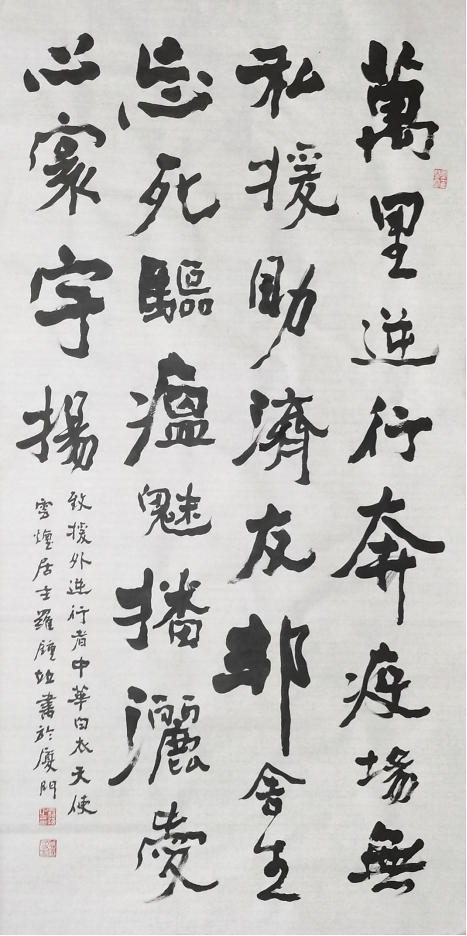 萬里逆行奔疫場無
私援助濟友邦舍生
忘死驅瘟魅播灑愛
心寰宇揚
致援外逆行者中華白衣天使
居士羅鐘書於廈門